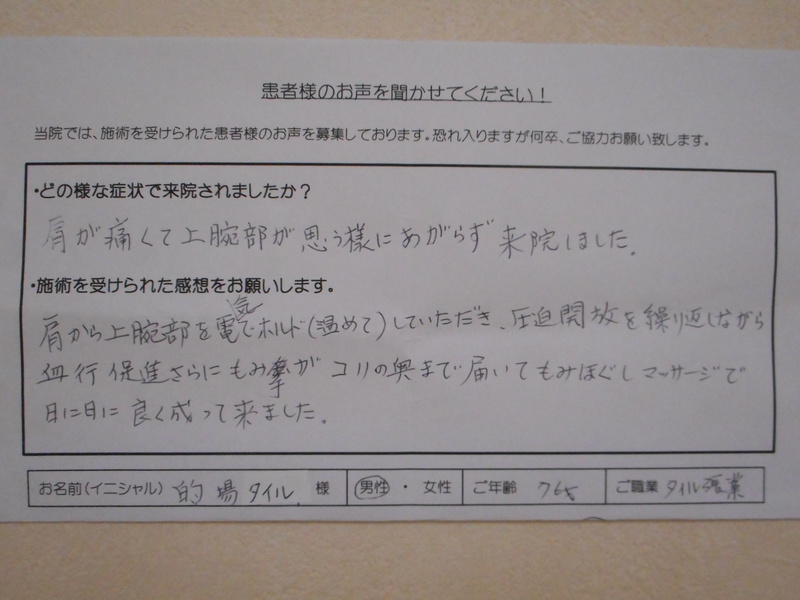 患者様のお声を聞かせてください！
当院では、施術を受けられた患者様のお声を募集しております。恐れ入りますが何卒、ご協力お願い致します。
・どの様な症状で来院されましたか？
肩が痛くて上腕部が思う様にあがらず来院しました。
・施術を受けられた感想をお願いします。
肩から上腕部を電気でホルド(温めて)していただき、圧迫開放を繰り返しながら
血行促進さらにもみ拳がコリの奥まで届いてもみほぐしマッサージで
日に日に良く成って来ました。
お名前(イニシャル) 的場タイル 様 男性 ・ 女性 ご年齢 76才 ご職業 タイル 業